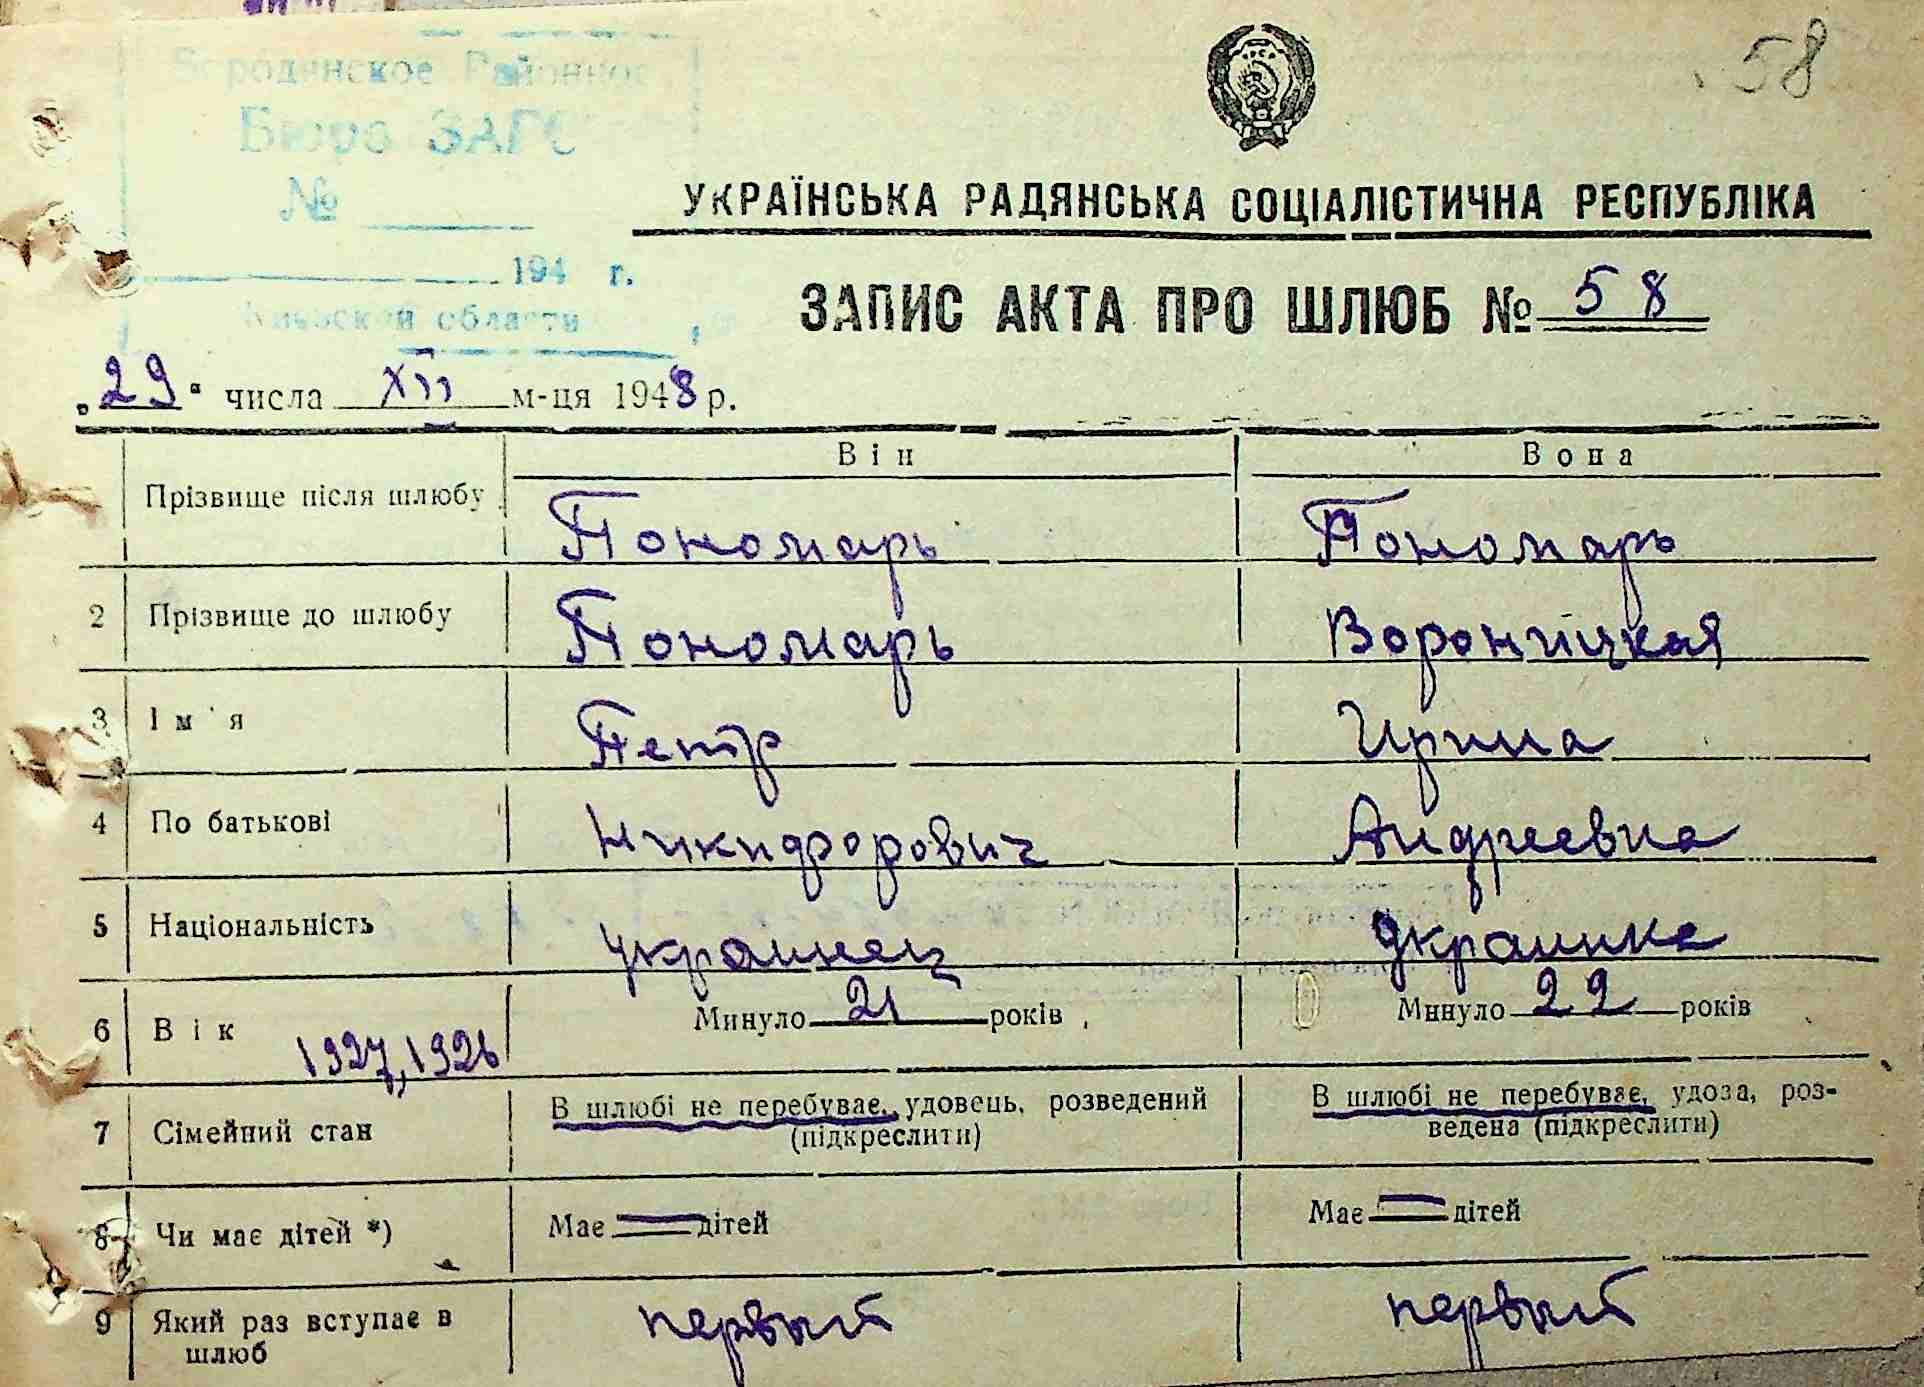 58
Бородянское Районное
Бюро ЗАГС
№
194 г.
Киевской области
УКРАЇНСЬКА РАДЯНСЬКА СОЦІАЛІСТИЧНА РЕСПУБЛІКА
ЗАПИС АКТА ПРО ШЛЮБ № 58
„29“ числа XII м-ця 1948 р.
Він Вона
Прізвище після шлюбу Пономарь Пономарь
2 Прізвище до шлюбу Пономарь Вороницкая
3 Ім'я Петр Ирина
4 По батькові Никифорович Андреевна
5 Національність украинец украинка
6 Вік 1927, 1926 Минуло 21 років Минуло 22 років
7 Сімейний стан В шлюбі не перебуває, удовець, розведений (підкреслити) В шлюбі не перебуває, удова, роз-
ведена (підкреслити)
8 Чи має дітей *) Має — дітей Має — дітей
9 Який раз вступає в первый первый
шлюб